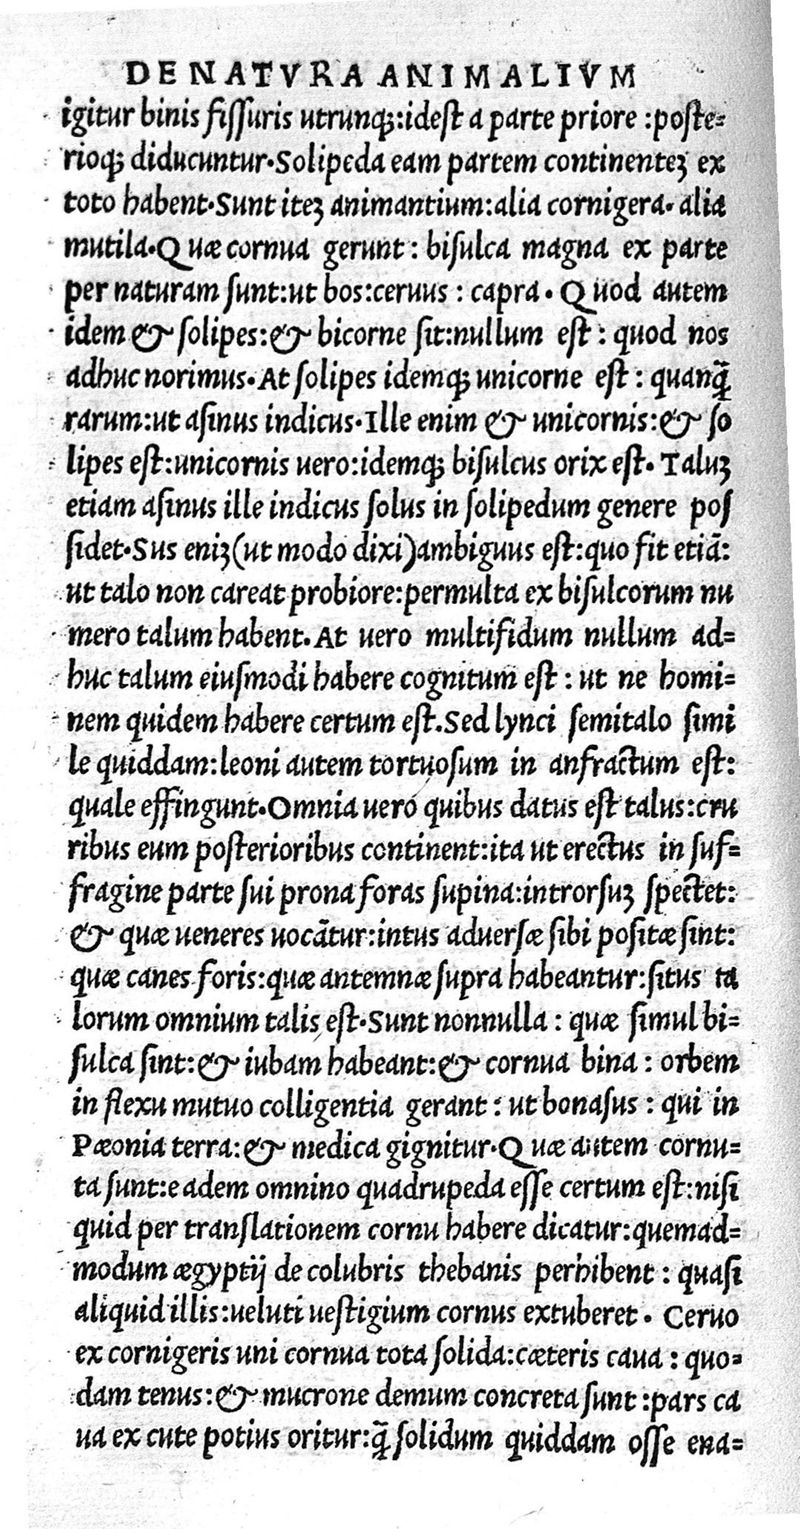 DE NATVRA ANIMALIVM
igitur binis fiſſuris utrunqꝫ:ideſt a parte priore :poſte=
rioqꝫ diducuntur.Solipeda eam partem continenteʒ ex
toto habent.Sunt iteʒ animantium:alia cornigera. alia
mutila.Quæ cornua gerunt: biſulca magna ex parte
per naturam ſunt:ut bos:ceruus : capra. Quod autem
idem & ſolipes:& bicorne ſit:nullum eſt : quod nos
adhuc norimus.At ſolipes idemqꝫ unicorne eſt : quanq̃
rarum:ut aſinus indicus.Ille enim & unicornis:& ſo
lipes eſt:unicornis uero:idemqꝫ biſulcus orix eſt. Taluʒ
etiam aſinus ille indicus ſolus in ſolipedum genere poſ
ſidet.Sus eniʒ(ut modo dixi)ambiguus eſt:quo fit etiā:
ut talo non careat probiore:permulta ex biſulcorum nu
mero talum habent.At uero multifidum nullum ad=
huc talum eiuſmodi habere cognitum eſt : ut ne homi=
nem quidem habere certum eſt.Sed lynci ſemitalo ſimi
le quiddam:leoni autem tortuoſum in anfractum eſt:
quale effingunt.Omnia uero quibus datus eſt talus:cru
ribus eum poſterioribus continent:ita ut erectus in ſuf=
fragine parte ſui prona foras ſupina:introrſuʒ ſpectet:
& quæ ueneres uocātur:intus aduerſæ ſibi poſitæ ſint:
quæ canes foris:quæ antemnæ ſupra habeantur:ſitus ta
lorum omnium talis eſt.Sunt nonnulla : quæ ſimul bi=
ſulca ſint:& iubam habeant:& cornua bina : orbem
in flexu mutuo colligentia gerant : ut bonaſus : qui in
Pæonia terra:& medica gignitur.Quæ autem cornu=
ta ſunt:eadem omnino quadrupeda eſſe certum eſt:niſi
quid per tranſlationem cornu habere dicatur:quemad=
modum ægyptij de colubris thebanis perhibent : quaſi
aliquid illis:ueluti ueſtigium cornus extuberet . Ceruo
ex cornigeris uni cornua tota ſolida:cæteris caua : quo=
dam tenus:& mucrone demum concreta ſunt :pars ca
ua ex cute potius oritur:q̃ ſolidum quiddam oſſe ena=